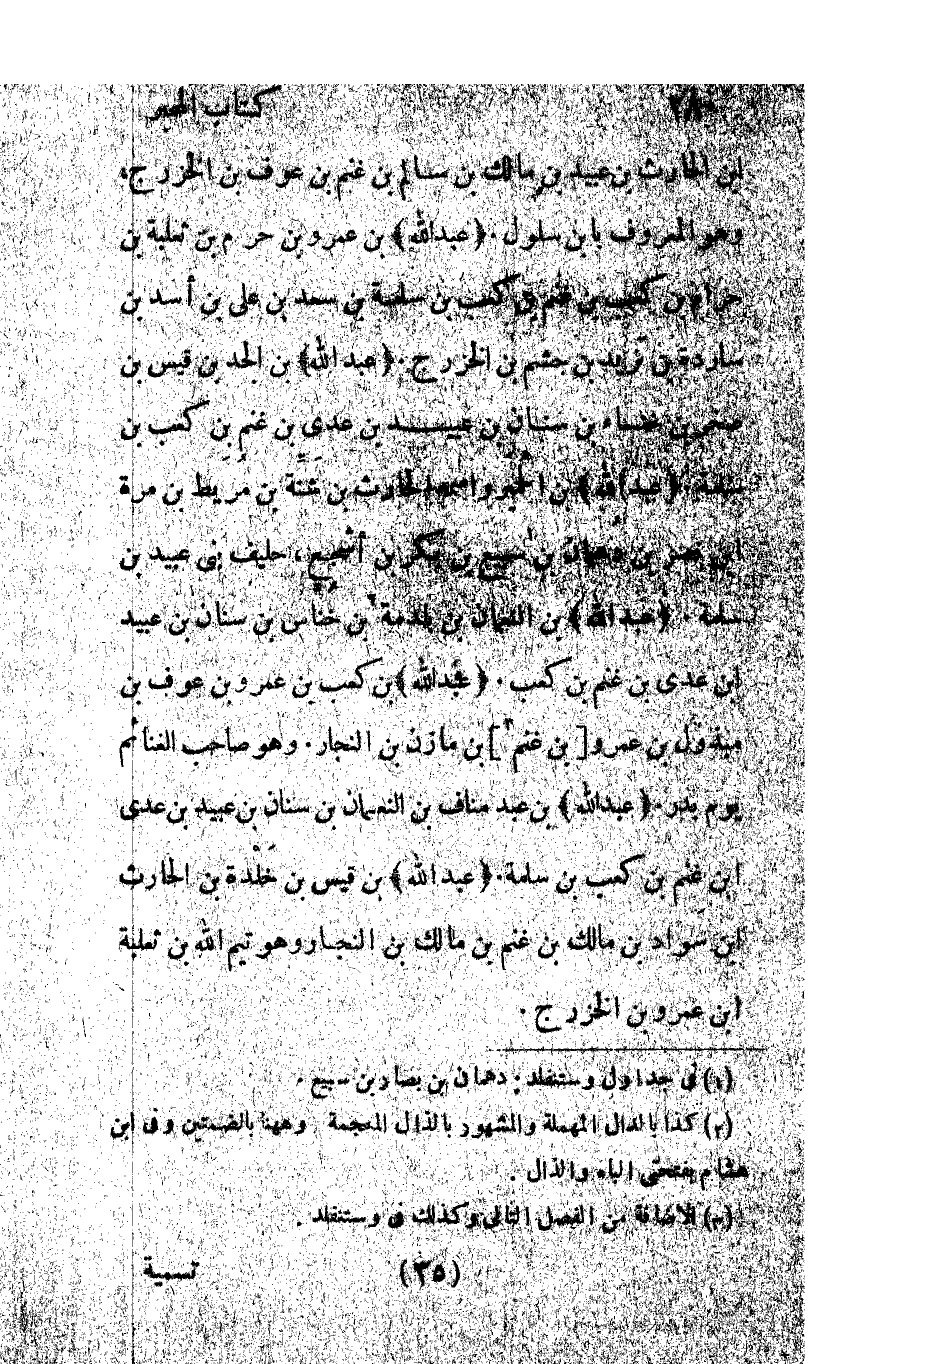 ٢٨٠ كتاب المحبر
ابن الحارث بن عبيد بن مالك بن سالم بن غنم بن عوف بن الخزرج،
وهو المعروف بابن سلول. (عبدالله) بن عمرو بن حرام بن ثعلبة بن
حرام بن كعب بن غنم بن كعب بن سلمة بن سعد بن على بن أسد بن
ساردة بن تزيد بن جشم بن الخزرج. (عبد الله) بن الجد بن قيس بن
صخر بن خنساء بن سنان بن عبيد بن عدى بن غنم بن كعب بن
سلمة. (عبدالله) بن الحمير واسمه الحارث بن بن مريط بن مرة
ابن نصر بن دهمان بن سبيع بن بكر بن أشجع، حليف بنى عبيد بن
سلمة. (عبدالله) بن النعمان بن بلدمة٢ بن خناس بن سنان بن عبيد
ابن عدى بن غنم بن كعب. (عبدالله) بن كعب بن عمرو بن عوف بن
مبذول بن عمرو [بن غنم٣] بن مازن بن النجار. وهو صاحب الغنائم
يوم بدر. (عبدالله) بن عبد مناف بن النعمان بن سنان بن عبيد بن عدى
ابن غنم بن كعب بن سلمة. (عبد الله) بن قيس بن خَلْدة بن الحارث
ابن سواد بن مالك بن غنم بن مالك بن النجار وهو تيم الله بن ثعلبة
ابن عمرو بن الخزرج.
(١) فى جداول وستنفلد: دهمان بن بصار بن سبيع.
(٢) كذا بالدال المهملة والمشهور بالذال المعجمة وههنا بالضمتين وفى ابن
هشام بفتحتى الباء والذال.
(٣) الاضافة من الفصل التالى وكذلك فى وستنفلد.
(٣٥) تسمية